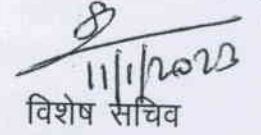 11/1/2023
विशेष सचिव